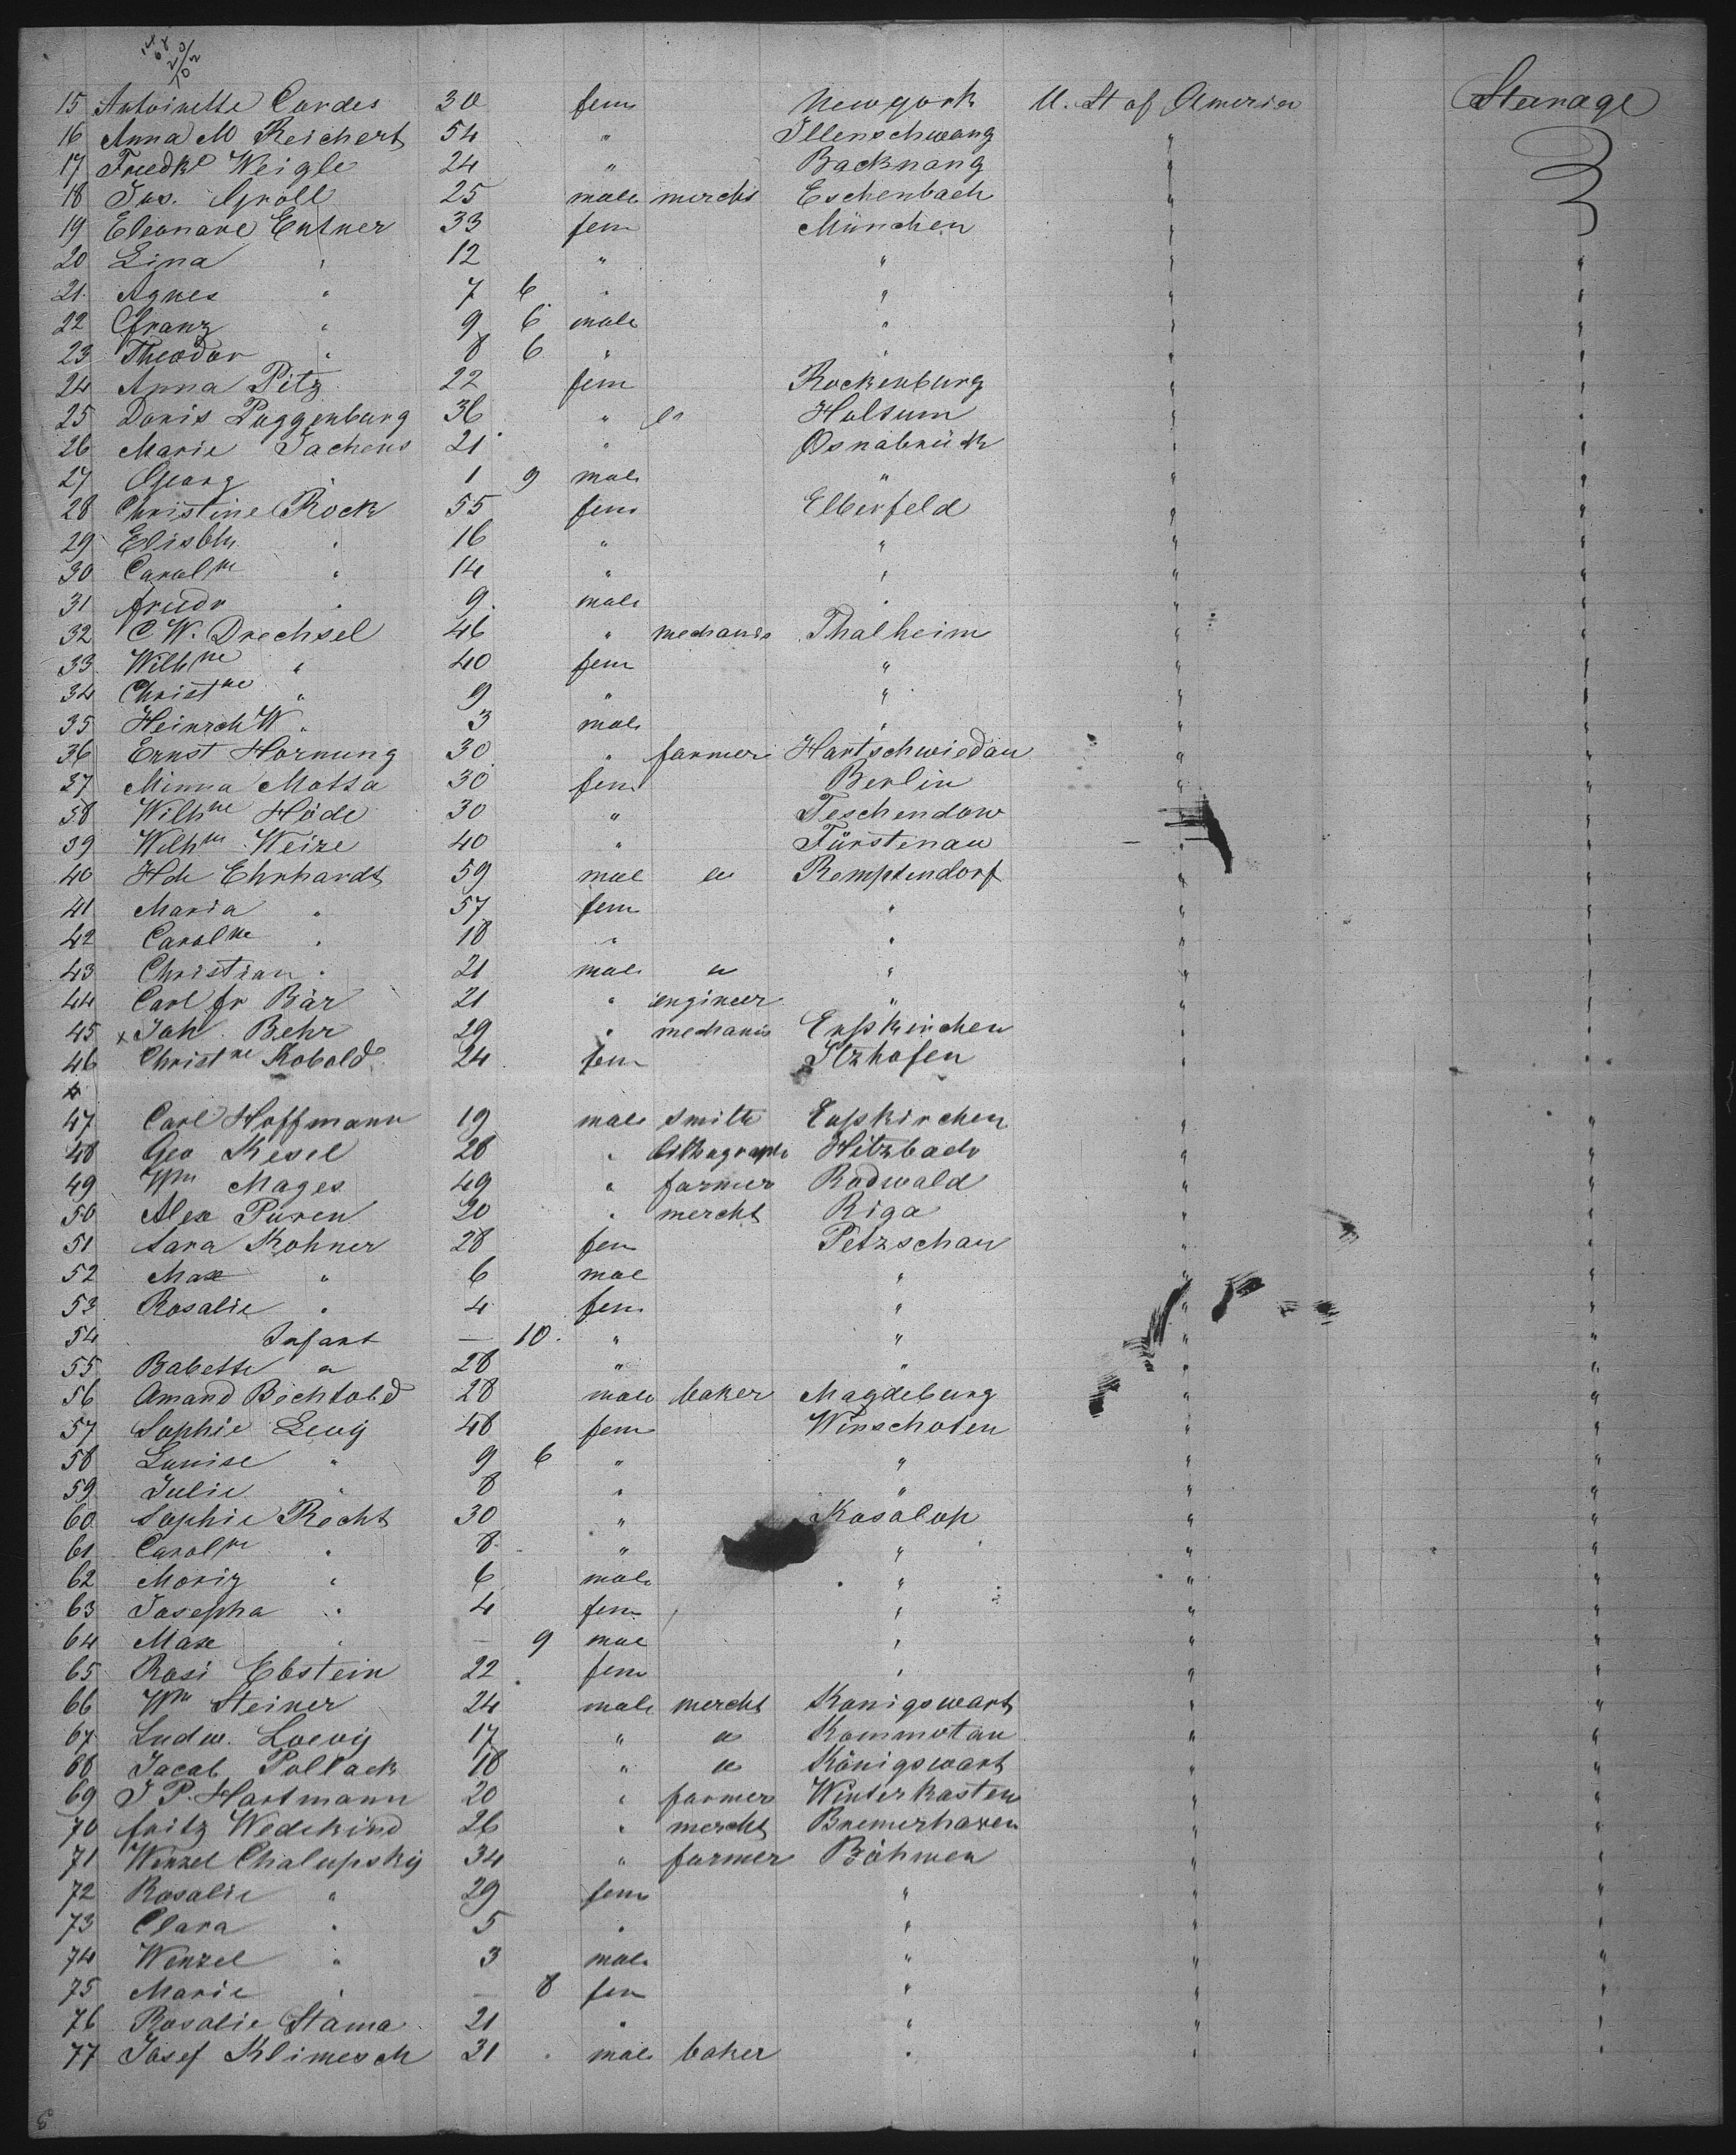 14
68
20/
102
15 Antoinette Cordes 30 fem Newyork U. St of America Steerage
16 Anna M Reichert 54 " Illenschwang "
17 Friedke Weigle 24 " Backnang "
18 Jos. Groll 25 male mercht Eschenbach "
19 Eleonore Entner 33 fem München "
20 Lina " 12 " " " "
21 Agnes " 7 6 " " " "
22 Franz " 9 6 male " " "
23 Theodor " 8 6 " " " "
24 Anna Pitz 22 fem Rockenburg " "
25 Doris Poggenburg 36 " " Holsum " "
26 Marie Tachens 21 " Osnabrück " "
27 Georg " 1 9 male " " "
28 Christine Rock 55 fem Elberfeld " "
29 Elisbth " 16 " " " "
30 Carolne " 14 " " " "
31 Friedr " 9 male " " "
32 C W. Drechsel 46 " mechanic Thalheim " "
33 Wilhne " 40 fem " " "
34 Christne " 9 " " " "
35 Heinrch W " 3 male " " "
36 Ernst Hornung 30 " farmer Hartschwiedau " "
37 Minna Motta 30 fem Berlin " "
38 Wilhne Höde 30 " Teschendow "
39 Wilhne Weize 40 " Fürstenau " "
40 Hch Ehrhardt 59 male " Remptendorf " "
41 Maria " 57 fem " " "
42 Carolne " 18 " " " "
43 Christian " 21 male " " " "
44 Carl Fr Bär 21 " engineer " " "
45 x Joh Behr 29 " mechanic Erpskirchen " "
46 Christne Kobold 24 fem Itzhofen " "
47 Carl Hoffmann 19 male Smith Eupskirchen " "
48 Geo Kesel 28 " lithograph Hitzbach " "
49 Wm Mages 49 " farmer Rodwald " "
50 Alex Puren 20 " mercht Riga " "
51 Sara Kohner 28 fem Petzschau " "
52 Max " 6 male " " "
53 Rosalie " 4 fem " " "
54 Infant — 10 " " " "
55 Babette " 28 " " " "
56 Amand Bechtold 28 male baker Magdeburg " "
57 Sophie Levy 48 fem Winschoten " "
58 Louise " 9 6 " " " "
59 Julie " 8 " " " "
60 Sophie Recht 30 " Kosolup " "
61 Carolne " 8 " " " "
62 Moriz " 6 male " " "
63 Josepha " 4 fem " " "
64 Max " — 9 male " " "
65 Rosi Ebstein 22 fem " " "
66 Wm Steiner 24 male mercht Konigswart " "
67 Ludw. Loevy 17 " " Kommotau " "
68 Jacob Pollack 18 " " Königswart " "
69 J P. Hartmann 20 " farmer Winterkasten " "
70 Fritz Wedekind 26 " mercht Bremerhaven " "
71 Wenzel Chalupsky 34 " farmer Böhmen " "
72 Rosalie " 29 fem " " "
73 Clara " 5 " " " "
74 Wenzel " 3 male " " "
75 Marie " — 8 fem " " "
76 Rosalie Stama 21 " " " "
77 Josef Klimesch 31 male baker " " "